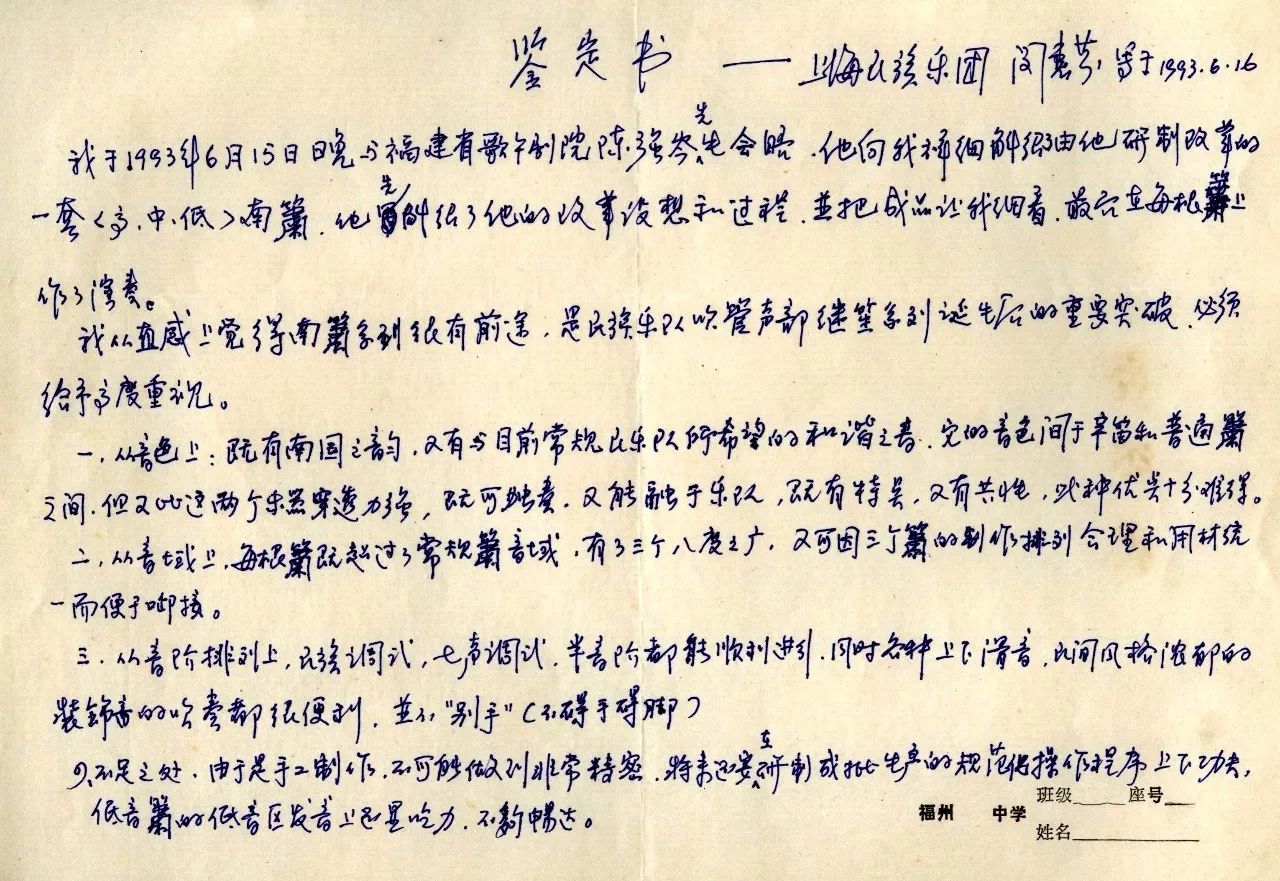 鉴定书 —— 上海民族乐团 闵惠芬 写于1993.6.16
我于1993年6月15日晚与福建省歌午剧院陈强岑先生会晤.他向我详细解绍由他研制改革的
一套<高.中.低>南箫.他先解绍了他的改革设想和过程.並把成品让我细看.最后在每根箫上
作了演奏。
我从直感上觉得南箫系列很有前途.是民族乐队吹管声部继笙系列诞生后的重要突破.必须
给予高度重视。
一.从音色上:既有南国之韵,又有与目前常规民乐队所希望的和谐之音.它的音色间于竹笛和普通箫
之间.但又比这两个乐器穿透力强,既可独奏.又能融于乐队,既有特点,又有共性,此种优点十分难得。
二,从音域上,每根箫既超过了常规箫音域,有了三个八度之广,又可因三个箫的制作排列合理和用材统
一而便于啣接。
三.从音阶排列上,民族调式,七声调式.半音阶都能顺利进行.同时各种上下滑音,民间风格浓郁的
装饰音的吹奏都很便利,並不"别手"(不碍手碍脚)
不足之处.由于是手工制作.不可能做到非常精密.将来还要在研制成批生产的规范操作程序上下功夫,
低音箫的低音区发音上还显吃力.不够畅达。
福州 中学 班级____ 座号__
姓名__________